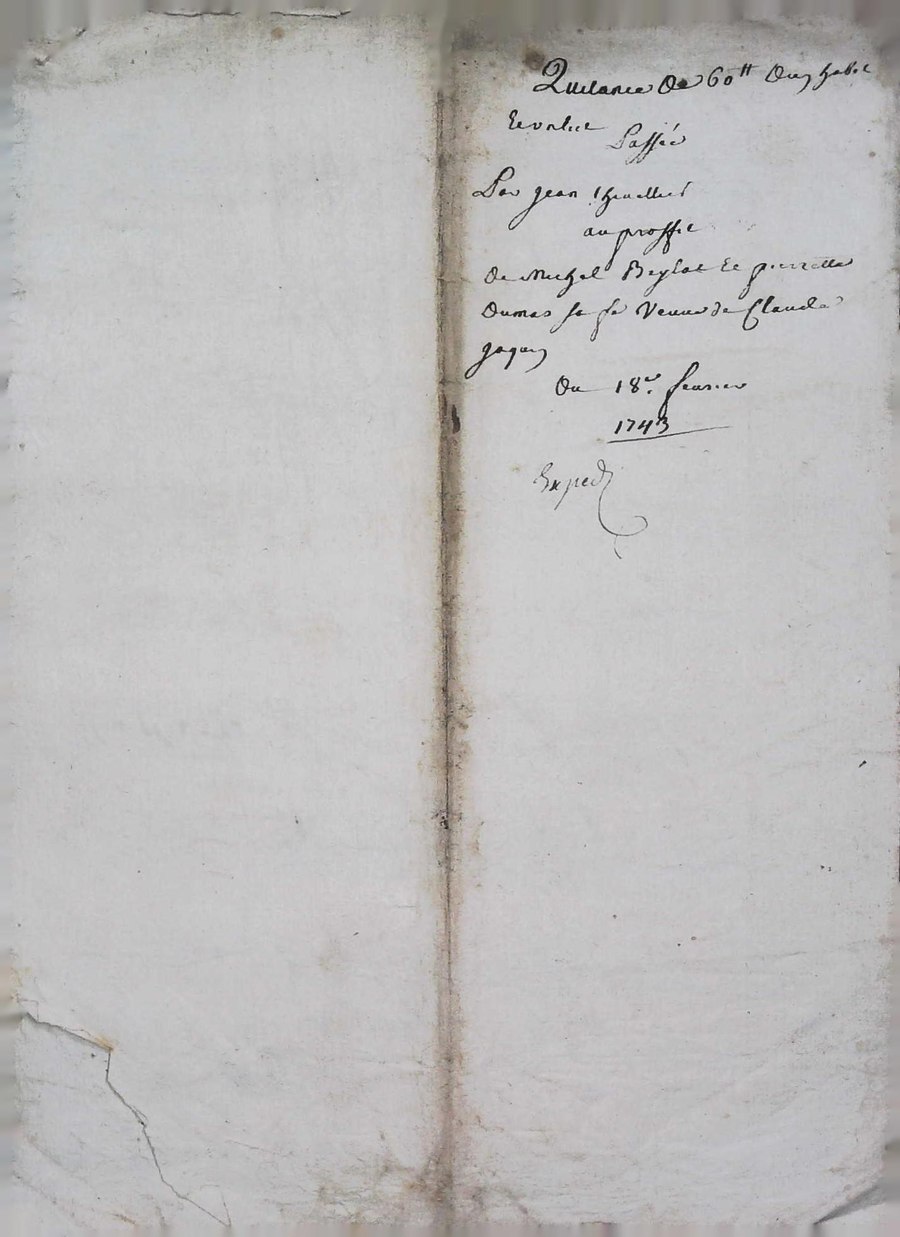 Quitance de 60tt Dun habit
Et voluë
Passée
Par jean Chevallier
au proffit
de Michel Beylot Et pierrette
Dumas sa fe Veuve de Claude
jaquy
Du 18e. fevrier
1743
Exped